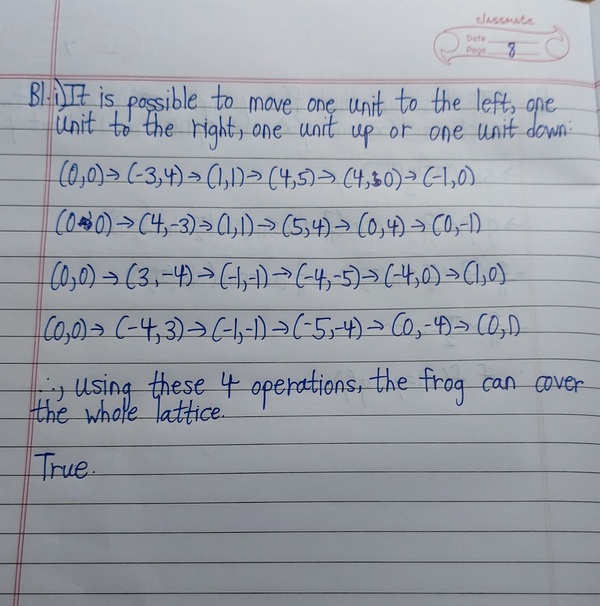 classmate
Date
Page 8
B1. i) It is possible to move one unit to the left, one
unit to the right, one unit up or one unit down:
(0,0)→(-3,4)→(1,1)→(4,5)→(4,0)→(-1,0)
(0,0)→(4,-3)→(1,1)→(5,4)→(0,4)→(0,-1)
(0,0)→(3,-4)→(-1,-1)→(-4,-5)→(-4,0)→(1,0)
(0,0)→(-4,3)→(-1,-1)→(-5,-4)→(0,-4)→(0,1)
∴, using these 4 operations, the frog can cover
the whole lattice.
True.